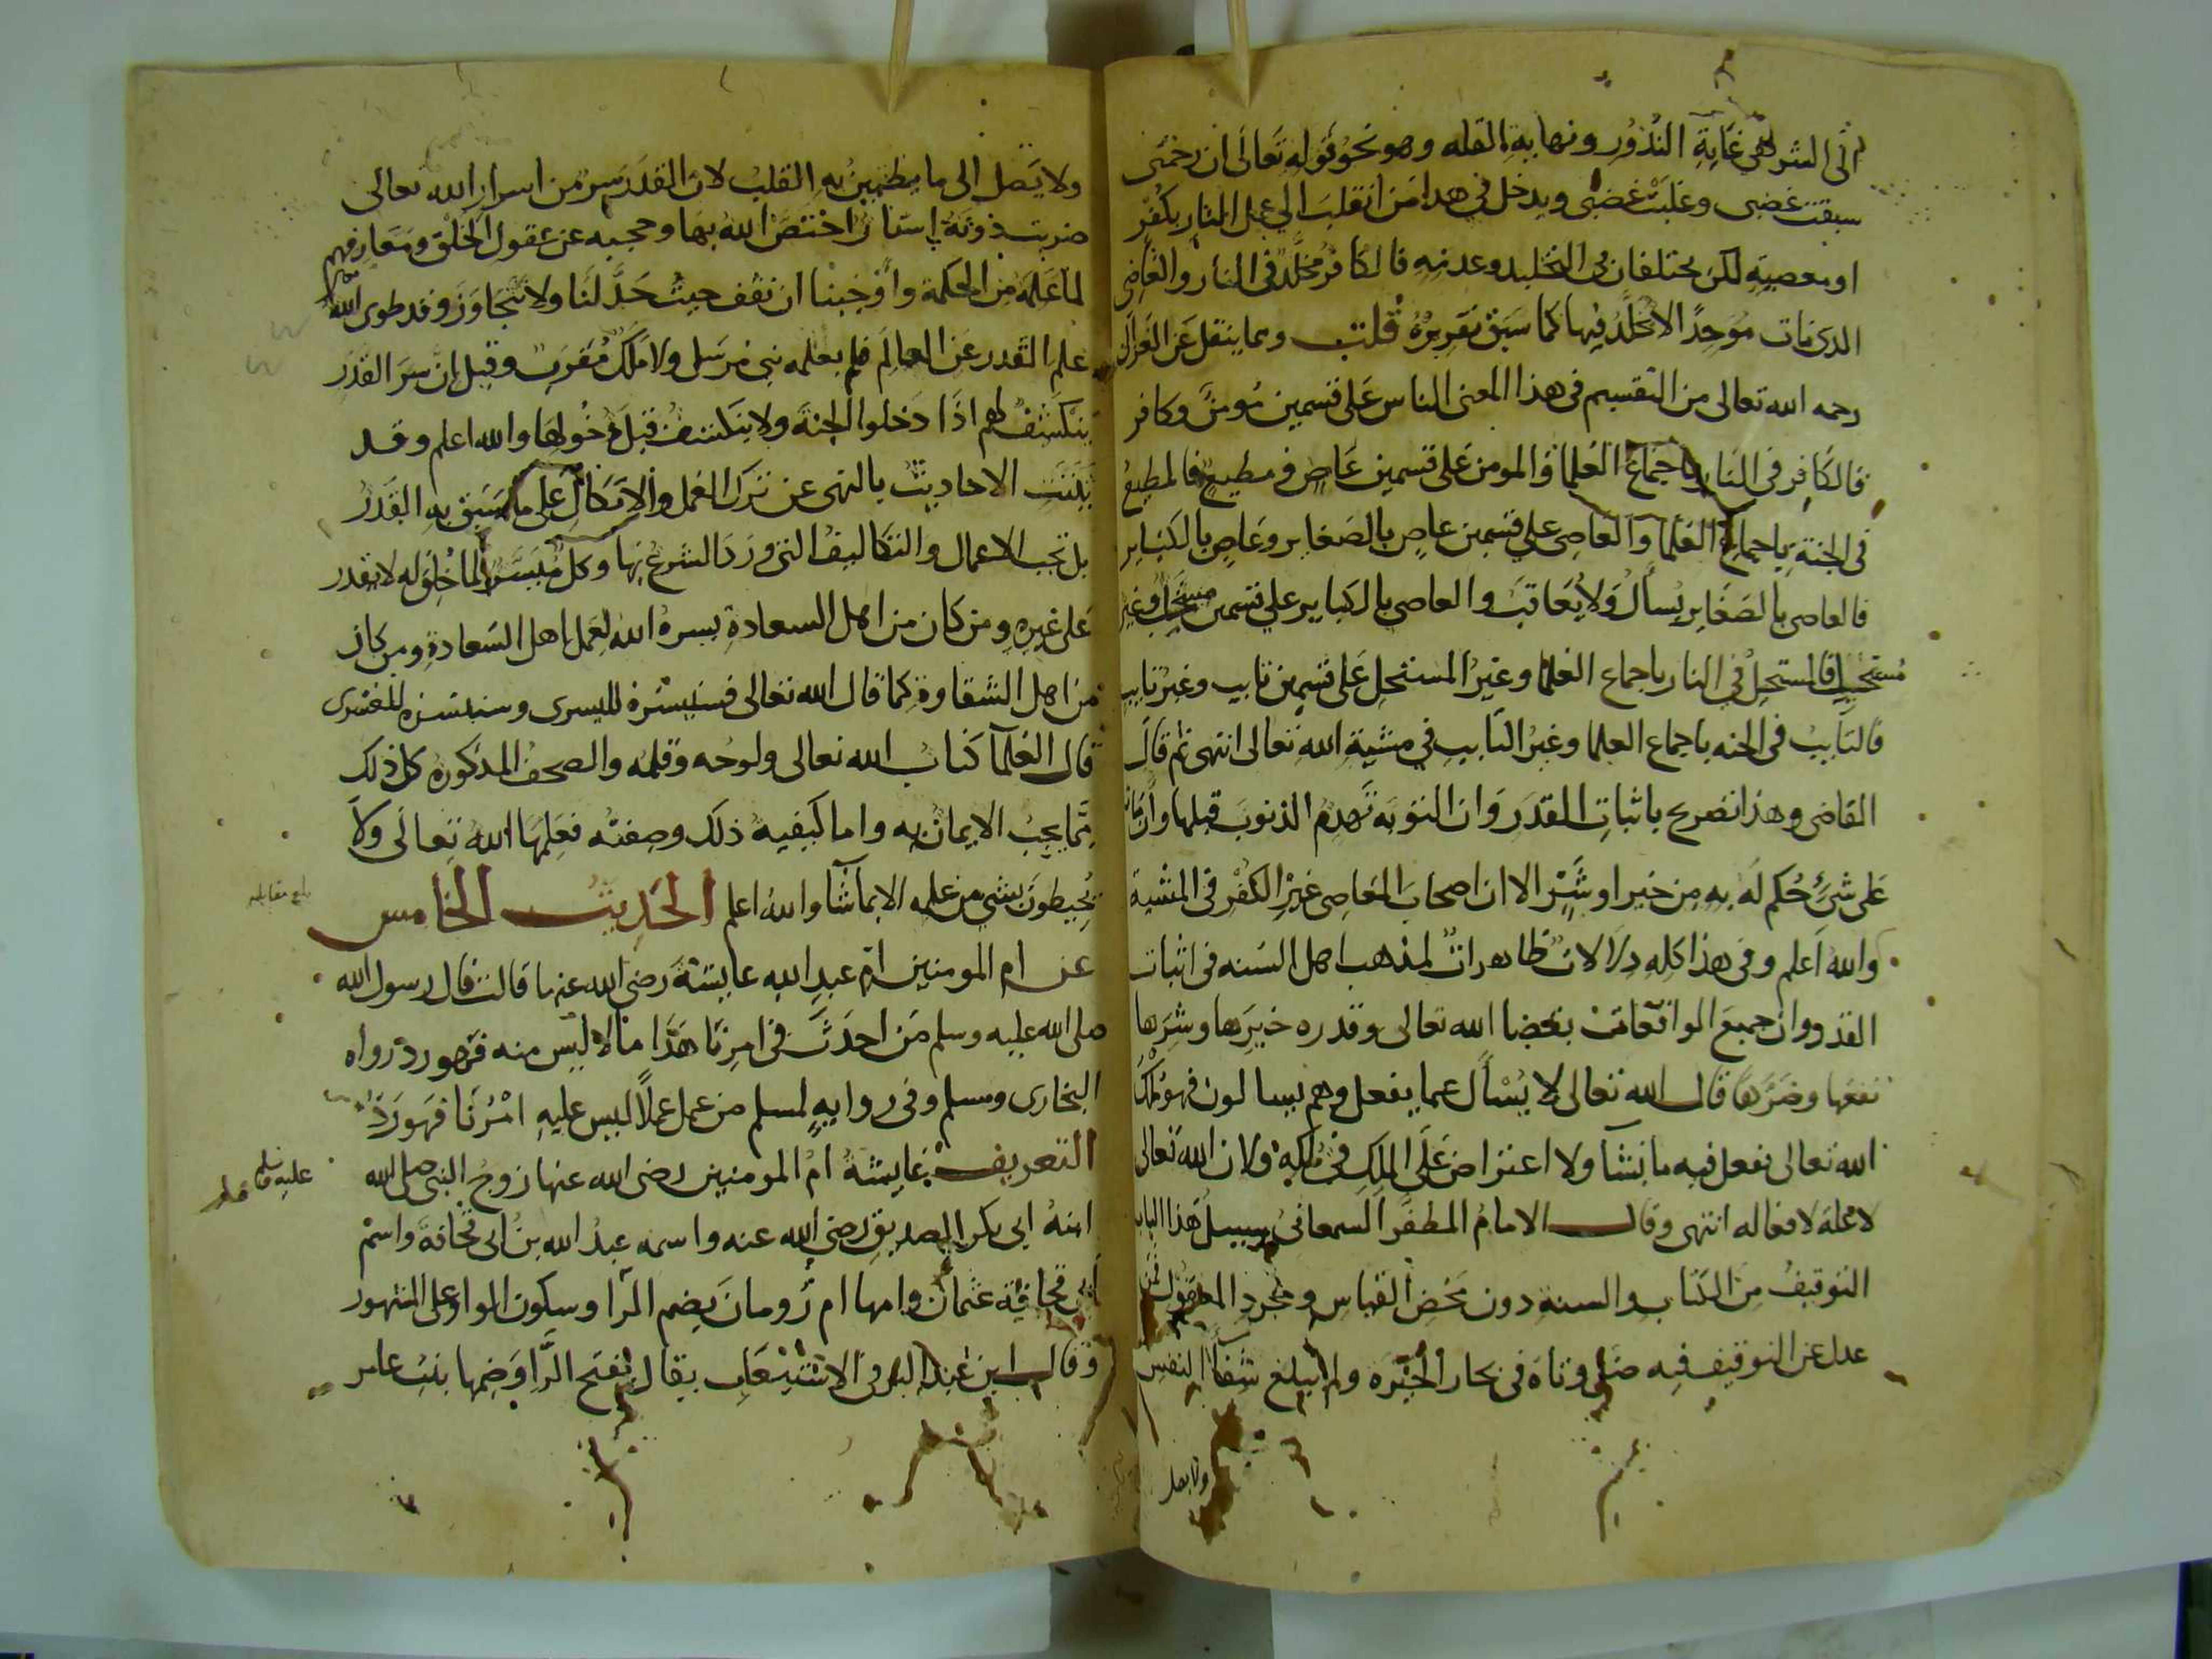 الى الشر ففى غاية الندور ونهاية القله وهو نحو قوله تعالى ان رحمتى
سبقت غضبى وغلبت غضبى ويدخل فى هذا من انقلب الى عمل النار بكفر
او معصية لكن يختلفان فى التخليد وعدمه فالكافر مخلد فى النار والعاصى
الذى مات موحدا لا يخلد فيها كما سبق تقريره قلت ومما ينقل عن الغزالى
رحمه الله تعالى من التقسيم فى هذا المعنى الناس على قسمين مومن وكافر
فالكافر فى النار باجماع العلما والمومن على قسمين عاص ومطيع فالمطيع
فى الجنة باجماع العلما والعاصى على قسمين عاص بالصغاير وعاص بالكباير
فالعاصى بالصغاير يسأل ولا يعاقب والعاصى بالكباير على قسمين مستحل وغير
مستحل فالمستحل فى النار باجماع العلما وغير المستحل على قسمين تايب وغير تايب
فالتايب فى الجنه باجماع العلما وغير التايب فى مشية الله تعالى انتهى ثم قال
القاضى وهذا تصريح باثبات القدر وان التوبة تهدم الذنوب قبلها وان مات
على شئ حكم له به من خير او شر الا ان اصحاب المعاصى غير الكفر فى المشية
والله اعلم وفى هذا كله دلالات ظاهرات لمذهب اهل السنه فى اثبات
القدر وان جميع الواقعات بقضا الله تعالى وقدره خيرها وشرها
نفعها وضرها قال الله تعالى لا يسأل عما يفعل وهم يسالون فهو ملك
الله تعالى يفعل فيه ما يشآ ولا اعتراض على الملك فى ملكه ولان الله تعالى
لا علة لافعاله انتهى وقال الامام المظفر السمعانى سبيل هذا الباب
التوقيف من الكتاب والسنة دون محض القياس ومجرد المعقول فمن
عدل عن التوقيف فيه ضل وتاه فى بحار الحيرة ولم يبلغ شفآ النفس
ولا يصل
ولا يصل الى ما يطمين به القلب لان القدر سر من اسرار الله تعالى
ضربت دونه استار اختص الله بها وحجبه عن عقول الخلق ومعارفهم
لما علمه من الحكمة واوجبنا ان نقف حيث حد لنا ولا نتجاوز وقد طوى الله تعالى
علم القدر عن العالم فلم يعلمه نبى مرسل ولا ملك مقرب وقيل ان سر القدر
ينكشف لهم اذا دخلوا الجنة ولا ينكشف قبل دخولها والله اعلم وقد
بينت الاحاديث بالنهى عن ترك العمل والاتكال على ما سبق به القدر
بل تجب الاعمال والتكاليف التى ورد الشرع بها وكل ميسر لما خلق له لا يقدر
على غيره ومن كان من اهل السعادة يسره الله لعمل اهل السعادة ومن كان
من اهل الشقاوة كما قال الله تعالى فسنيسره لليسرى وسنيسره للعسرى
قال العلمآ كتاب الله تعالى ولوحه وقلمه والصحف المذكوره كل ذلك
مما يجب الايمان به واما كيفيه ذلك وصفته فعلمها الله تعالى ولا
يحيطون بشى من علمه الا بما شآ والله اعلم الحديث الخامس
بلغ مقابله
عن ام المومنين ام عبد الله عايشة رضى الله عنها قالت قال رسول الله
صلى الله عليه وسلم من احدث فى امرنا هذا ما ليس منه فهو رد رواه
البخارى ومسلم وفى رواية لمسلم من عمل عملا ليس عليه امرنا فهو رد
التعريف عايشة ام المومنين رضى الله عنها زوج النبى صلى الله
عليه وسلم
ابنة ابى بكر الصديق رضى الله عنه واسمه عبد الله بن ابى قحافة واسم
ابى قحافة عثمان وامها ام رومان بضم الرا وسكون الواو على المشهور
وقال ابن عبد البر فى الاستيعاب يقال بفتح الرا وضمها بنت عامر